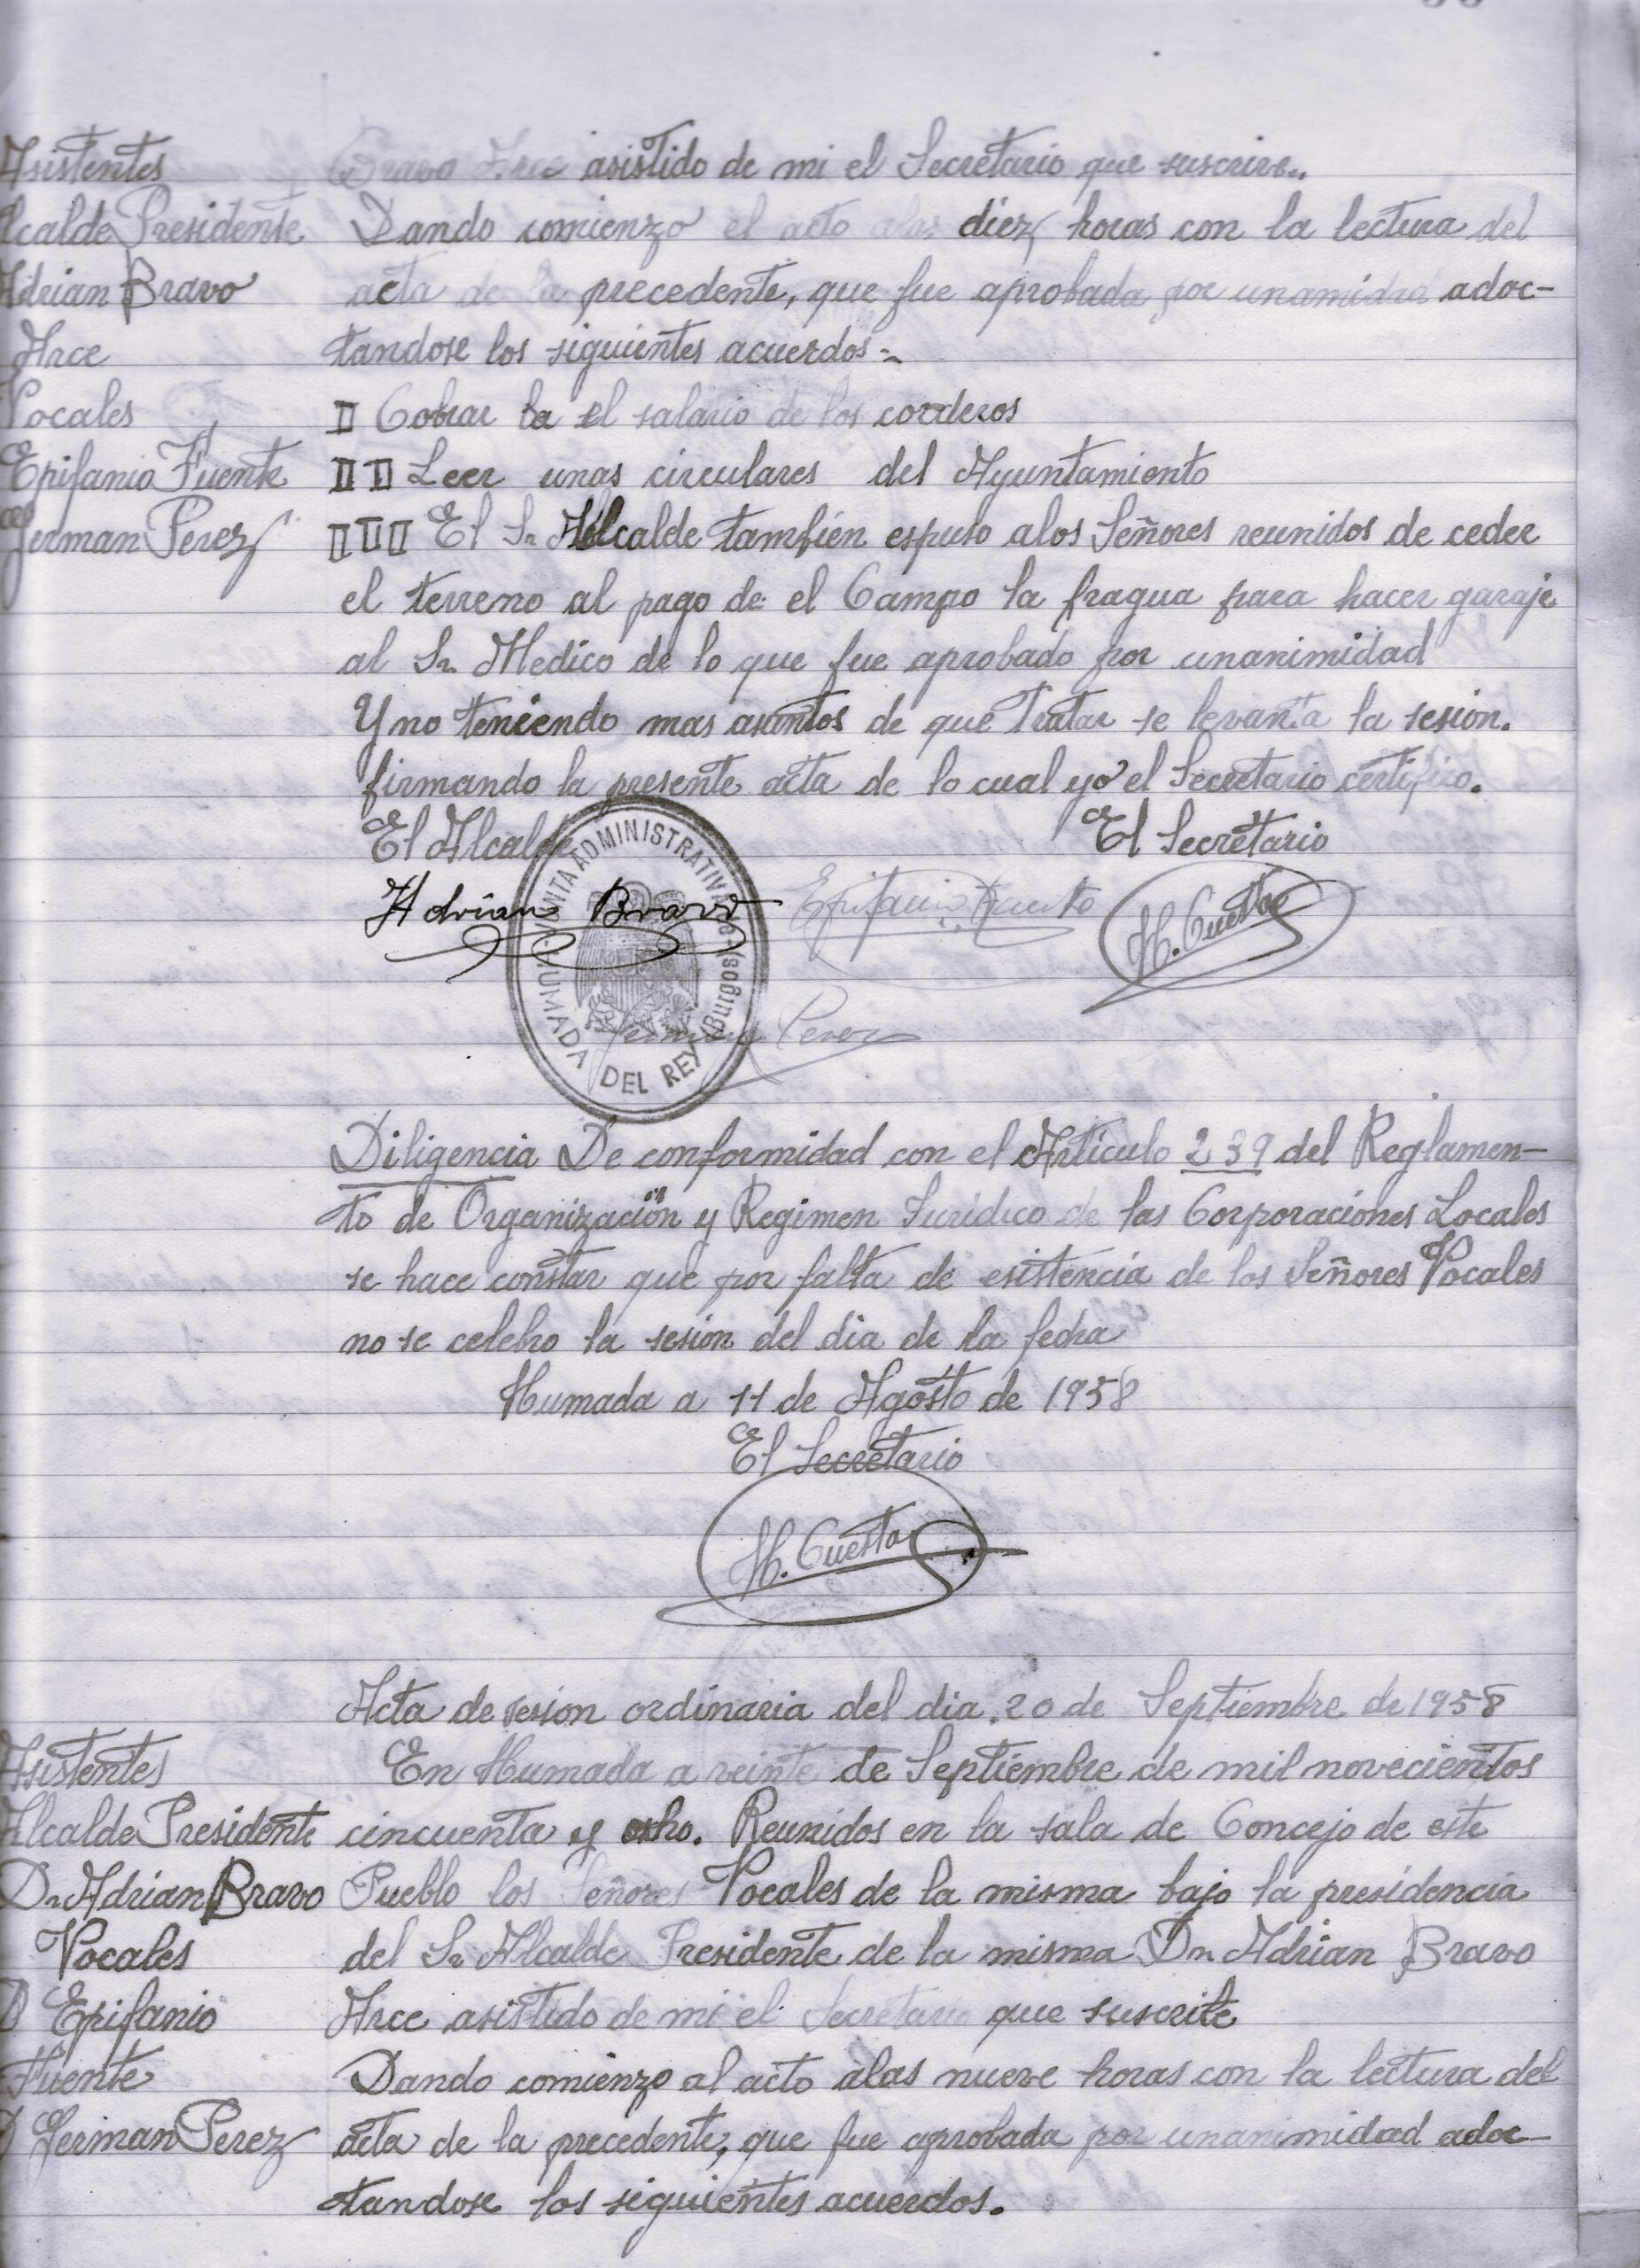 Asistentes
Alcalde Presidente
Adrian Bravo
Arce
Vocales
Epifanio Fuente
German Perez
Bravo Arce asistido de mi el Secretario que suscrive..
Dando comienzo el acto alas diez horas con la lectura del
acta de la precedente, que fue aprobada por unamidad adoc-
tandose los siguientes acuerdos-
I Cobrar la el salario de los corderos
II Leer unas circulares del Ayuntamiento
III El Sr Alcalde tambien espuso alos Señores reunidos de ceder
el terreno al pago de el Campo la fragua para hacer garaje
al Sr. Medico de lo que fue aprobado por unanimidad
Y no teniendo mas asuntos de que Tratar se levanta la sesion.
firmando la presente acta de lo cual yo el Secretario certifico.
El Alcalde
El Secretario
Adrian Bravo
Epifanio Fuente
H. Cuesta
German Perez
JUNTA ADMINISTRATIVA de HUMADA DEL REY (Burgos)
Diligencia De conformidad con el Articulo 239 del Reglamen-
to de Organización y Regimen Juridico de las Corporaciones Locales
se hace constar que por falta de esistencia de los Señores Vocales
no se celebro la sesion del dia de la fecha
Humada a 11 de Agosto de 1958
El Secretario
H. Cuesta
Acta de sesion ordinaria del dia 20 de Septiembre de 1958
Asistentes
Alcalde Presidente
Dn Adrian Bravo
Vocales
D Epifanio
Fuente
D German Perez
En Humada a veinte de Septiembre de mil novecientos
cincuenta y ocho. Reunidos en la sala de Concejo de este
Pueblo los Señores Vocales de la misma bajo la presidencia
del Sr Alcalde Presidente de la misma Dn Adrian Bravo
Arce asistido de mi el Secretario que suscrite
Dando comienzo al acto alas nueve horas con la lectura del
acta de la precedente, que fue aprobada por unanimidad adoc-
tandose los siguientes acuerdos.